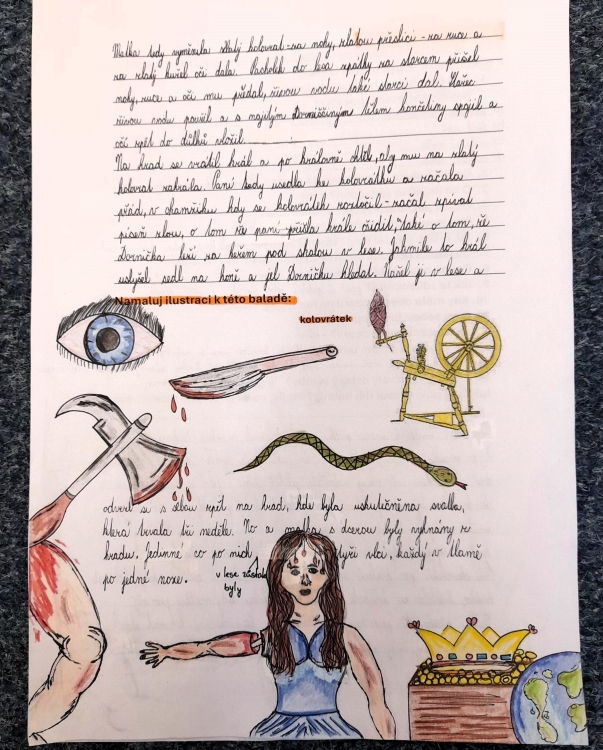 Matka tedy vyměnila zlatý kolovrat - za nohy, zlatou přeslici - za ruce a
za zlatý kužel oči dala. Pacholík do lesa zpátky za starcem přišel
nohy, ruce a oči mu předal, živou vodu také starci dal. Stařec
živou vodu použil a s mrtvým Dorniččiným tělem končetiny spojil a
oči zpět do důlků vložil.
Na hrad se vrátil král a po královně chtěl, aby mu na zlatý
kolovrat zahrála. Paní tedy usedla ke kolovrátku a začala
přád, v okamžiku kdy se kolovrátek roztočil - začal zpívat
píseň zlou, o tom že paní přišla krále ošidit, také o tom, že
Dornička leží za keřem pod skalou v lese. Jakmile to král
uslyšel sedl na koně a jel Dorničku hledat. Našel ji v lese a
Namaluj ilustraci k této baladě:
kolovrátek
odvezl si s sebou zpět na hrad, kde byla uskutečněna svatba,
která trvala tři neděle. No a matka s dcerou byly vyhnány z
hradu. Jedinné co po nich čtyři vlci, každý v tlamě
v lese zůstalo
byly
po jedné noze.